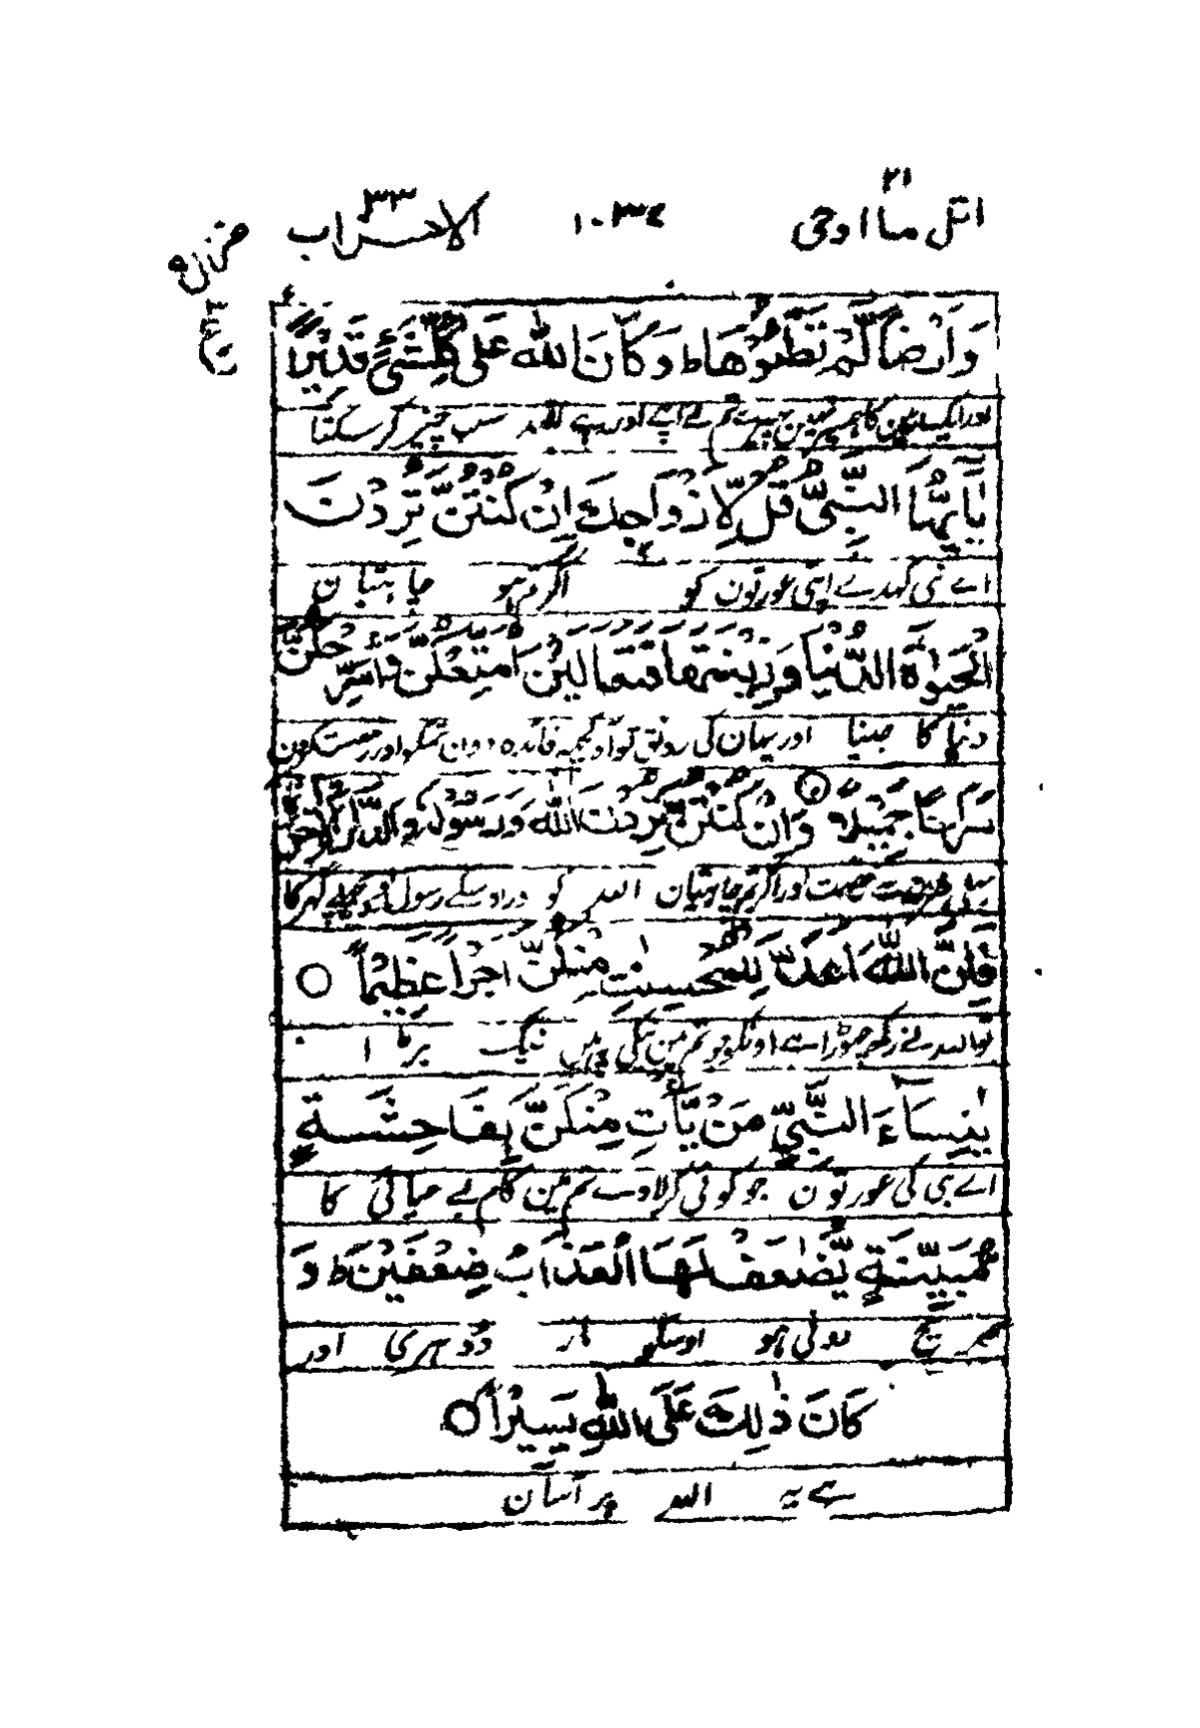 اتل ما اوحی ۲۱ ۱۰۳۴ الاحزاب ۳۳
وَاَرْضًا لَّمْ تَطَـُٔوْهَا ط وَكَانَ اللّٰهُ عَلٰى كُلِّ شَیْءٍ قَدِیْرًا
اور ایک زمین کہ جس پر نہیں پھیرے تم نے اپنے اور ہے اللہ سب چیز کر سکتا
یٰٓاَیُّهَا النَّبِیُّ قُلْ لِّاَزْوَاجِكَ اِنْ كُنْتُنَّ تُرِدْنَ
اے نبی کہدے اپنی عورتون کو اگر تم ہو چاہتیان
الْحَیٰوةَ الدُّنْیَا وَزِیْنَتَهَا فَتَعَالَیْنَ اُمَتِّعْكُنَّ وَاُسَرِّحْكُنَّ
دنیا کا جینا اور یہان کی رونق تو آؤ کچھہ فائدہ دون تمکو اور رخصت کرون
سَرَاحًا جَمِیْلًا ○ وَاِنْ كُنْتُنَّ تُرِدْنَ اللّٰهَ وَرَسُوْلَهٗ وَالدَّارَ الْاٰخِرَةَ
رخصت اور اگر تم چاہتیان اللہ کو اور اوسکے رسول کو اور پچھلے گہر کا
فَاِنَّ اللّٰهَ اَعَدَّ لِلْمُحْسِنٰتِ مِنْكُنَّ اَجْرًا عَظِیْمًا ○
تو اللہ نے رکھہ چھوڑا ہے اونکو جو تم مین نیکی پر ہین نیگ بڑا
یٰنِسَآءَ النَّبِیِّ مَنْ یَّاْتِ مِنْكُنَّ بِفَاحِشَةٍ
اے نبی کی عورتون جو کوئی کر لاوے تم مین کام بے حیائی کا
مُّبَیِّنَةٍ یُّضٰعَفْ لَهَا الْعَذَابُ ضِعْفَیْنِ ط وَ
صریح دونی ہو اوسکو مار دوہری اور
كَانَ ذٰلِكَ عَلَى اللّٰهِ یَسِیْرًا ○
ہے یہ اللہ پر آسان